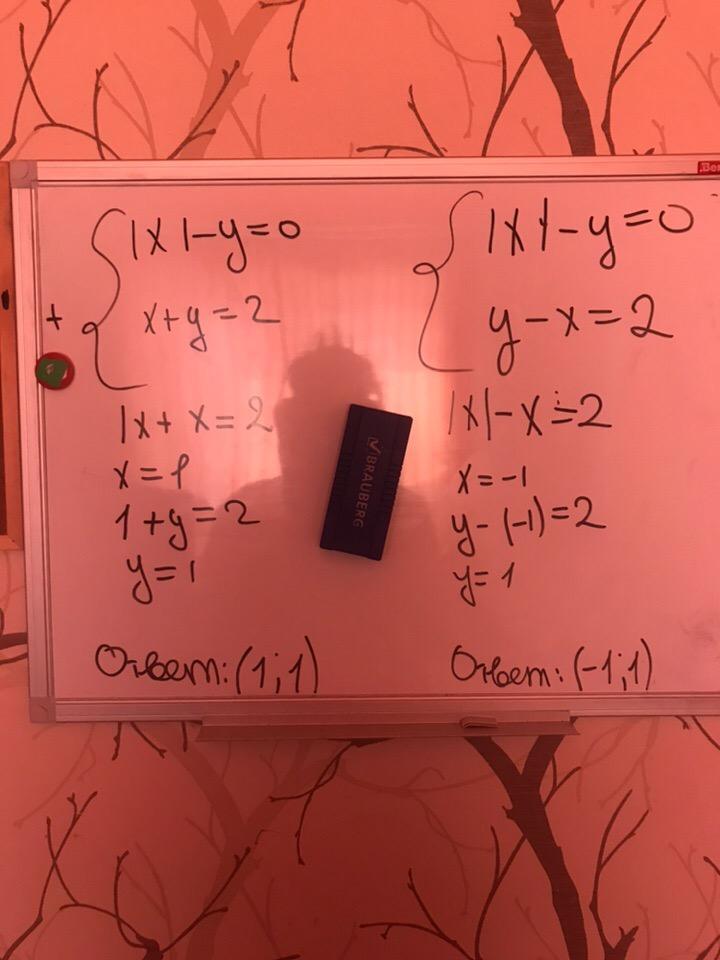 |x|-y=0
+
x+y=2
|x+x=2
x=1
1+y=2
y=1
Ответ: (1;1)
|x|-y=0
y-x=2
|x|-x=2
x=-1
y-(-1)=2
y=1
Ответ: (-1;1)
BRAUBERG